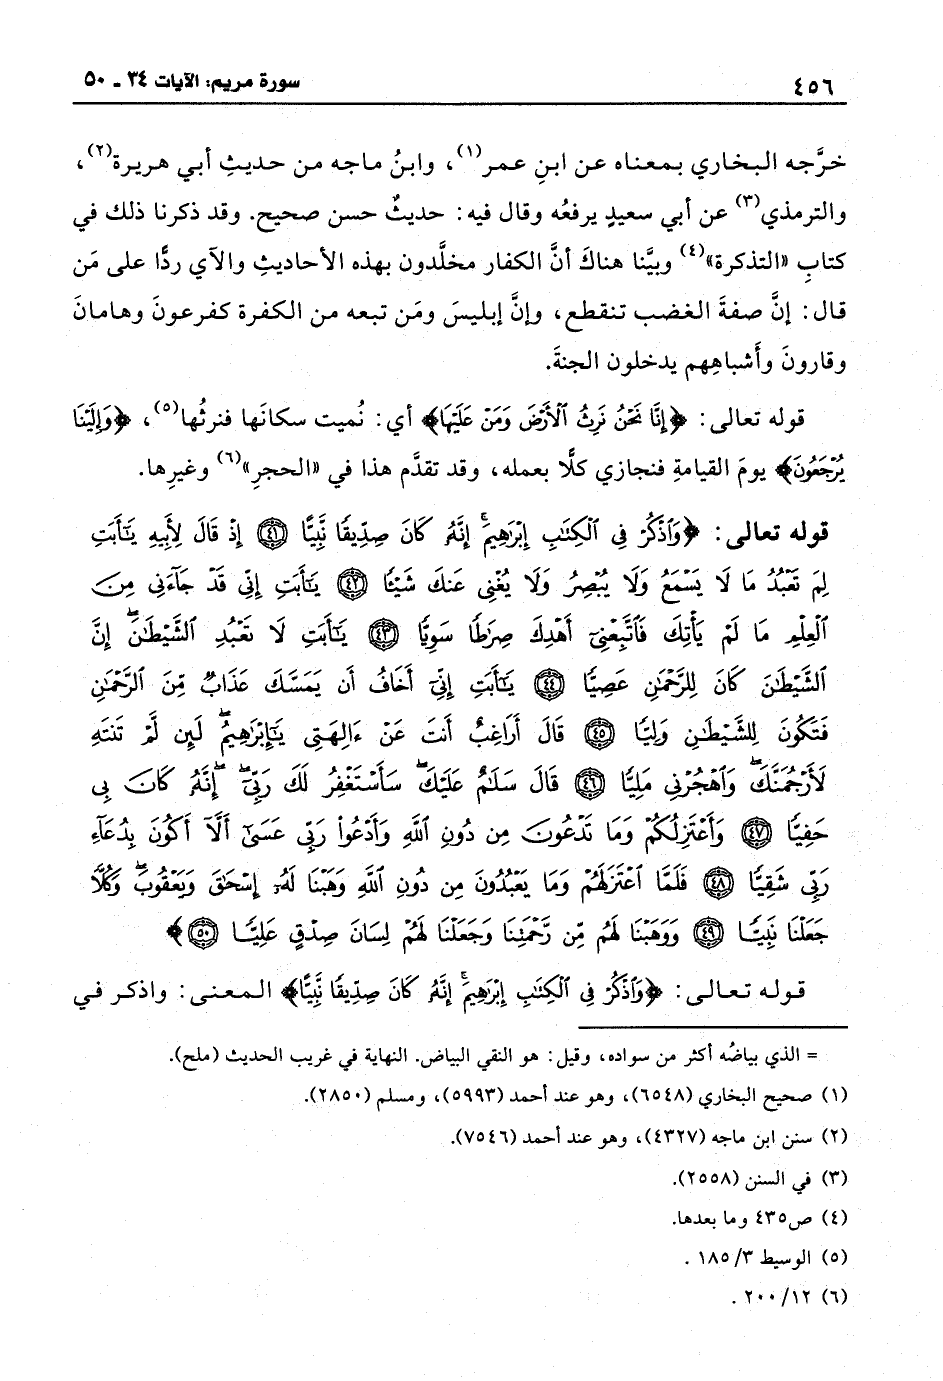 ٤٥٦ سورة مريم: الآيات ٣٤ ـ ٥٠
خرَّجه البخاري بمعناه عن ابنِ عمر(١)، وابنُ ماجه من حديثِ أبي هريرة(٢)،
والترمذي(٣) عن أبي سعيدٍ يرفعُه وقال فيه: حديثٌ حسن صحيح. وقد ذكرنا ذلك في
كتابِ «التذكرة»(٤) وبيَّنا هناكَ أنَّ الكفار مخلَّدون بهذه الأحاديثِ والآي ردًّا على مَن
قال: إنَّ صفةَ الغضب تنقطع، وإنَّ إبليسَ ومَن تبعه من الكفرة كفرعونَ وهامانَ
وقارونَ وأشباهِهم يدخلون الجنةَ.
قوله تعالى: ﴿إِنَّا نَحْنُ نَرِثُ ٱلْأَرْضَ وَمَنْ عَلَيْهَا﴾ أي: نُميت سكانَها فنرثُها(٥)، ﴿وَإِلَيْنَا
يُرْجَعُونَ﴾ يومَ القيامةِ فنجازي كلًّا بعمله، وقد تقدَّم هذا في «الحجرِ»(٦) وغيرِها.
قوله تعالى: ﴿وَٱذْكُرْ فِى ٱلْكِتَٰبِ إِبْرَٰهِيمَ ۚ إِنَّهُۥ كَانَ صِدِّيقًا نَّبِيًّا ٤١ إِذْ قَالَ لِأَبِيهِ يَٰٓأَبَتِ
لِمَ تَعْبُدُ مَا لَا يَسْمَعُ وَلَا يُبْصِرُ وَلَا يُغْنِى عَنكَ شَيْـًٔا ٤٢ يَٰٓأَبَتِ إِنِّى قَدْ جَآءَنِى مِنَ
ٱلْعِلْمِ مَا لَمْ يَأْتِكَ فَٱتَّبِعْنِىٓ أَهْدِكَ صِرَٰطًا سَوِيًّا ٤٣ يَٰٓأَبَتِ لَا تَعْبُدِ ٱلشَّيْطَٰنَ ۖ إِنَّ
ٱلشَّيْطَٰنَ كَانَ لِلرَّحْمَٰنِ عَصِيًّا ٤٤ يَٰٓأَبَتِ إِنِّىٓ أَخَافُ أَن يَمَسَّكَ عَذَابٌ مِّنَ ٱلرَّحْمَٰنِ
فَتَكُونَ لِلشَّيْطَٰنِ وَلِيًّا ٤٥ قَالَ أَرَاغِبٌ أَنتَ عَنْ ءَالِهَتِى يَٰٓإِبْرَٰهِيمُ ۖ لَئِن لَّمْ تَنتَهِ
لَأَرْجُمَنَّكَ ۖ وَٱهْجُرْنِى مَلِيًّا ٤٦ قَالَ سَلَٰمٌ عَلَيْكَ ۖ سَأَسْتَغْفِرُ لَكَ رَبِّىٓ ۖ إِنَّهُۥ كَانَ بِى
حَفِيًّا ٤٧ وَأَعْتَزِلُكُمْ وَمَا تَدْعُونَ مِن دُونِ ٱللَّهِ وَأَدْعُوا۟ رَبِّى عَسَىٰٓ أَلَّآ أَكُونَ بِدُعَآءِ
رَبِّى شَقِيًّا ٤٨ فَلَمَّا ٱعْتَزَلَهُمْ وَمَا يَعْبُدُونَ مِن دُونِ ٱللَّهِ وَهَبْنَا لَهُۥٓ إِسْحَٰقَ وَيَعْقُوبَ ۖ وَكُلًّا
جَعَلْنَا نَبِيًّا ٤٩ وَوَهَبْنَا لَهُم مِّن رَّحْمَتِنَا وَجَعَلْنَا لَهُمْ لِسَانَ صِدْقٍ عَلِيًّا ٥٠﴾
قوله تعالى: ﴿وَٱذْكُرْ فِى ٱلْكِتَٰبِ إِبْرَٰهِيمَ ۚ إِنَّهُۥ كَانَ صِدِّيقًا نَّبِيًّا﴾ المعنى: واذكر في
= الذي بياضُه أكثر من سواده، وقيل: هو النقي البياض. النهاية في غريب الحديث (ملح).
(١) صحيح البخاري (٦٥٤٨)، وهو عند أحمد (٥٩٩٣)، ومسلم (٢٨٥٠).
(٢) سنن ابن ماجه (٤٣٢٧)، وهو عند أحمد (٧٥٤٦).
(٣) في السنن (٢٥٥٨).
(٤) ص٤٣٥ وما بعدها.
(٥) الوسيط ٣/ ١٨٥ .
(٦) ١٢/ ٢٠٠ .